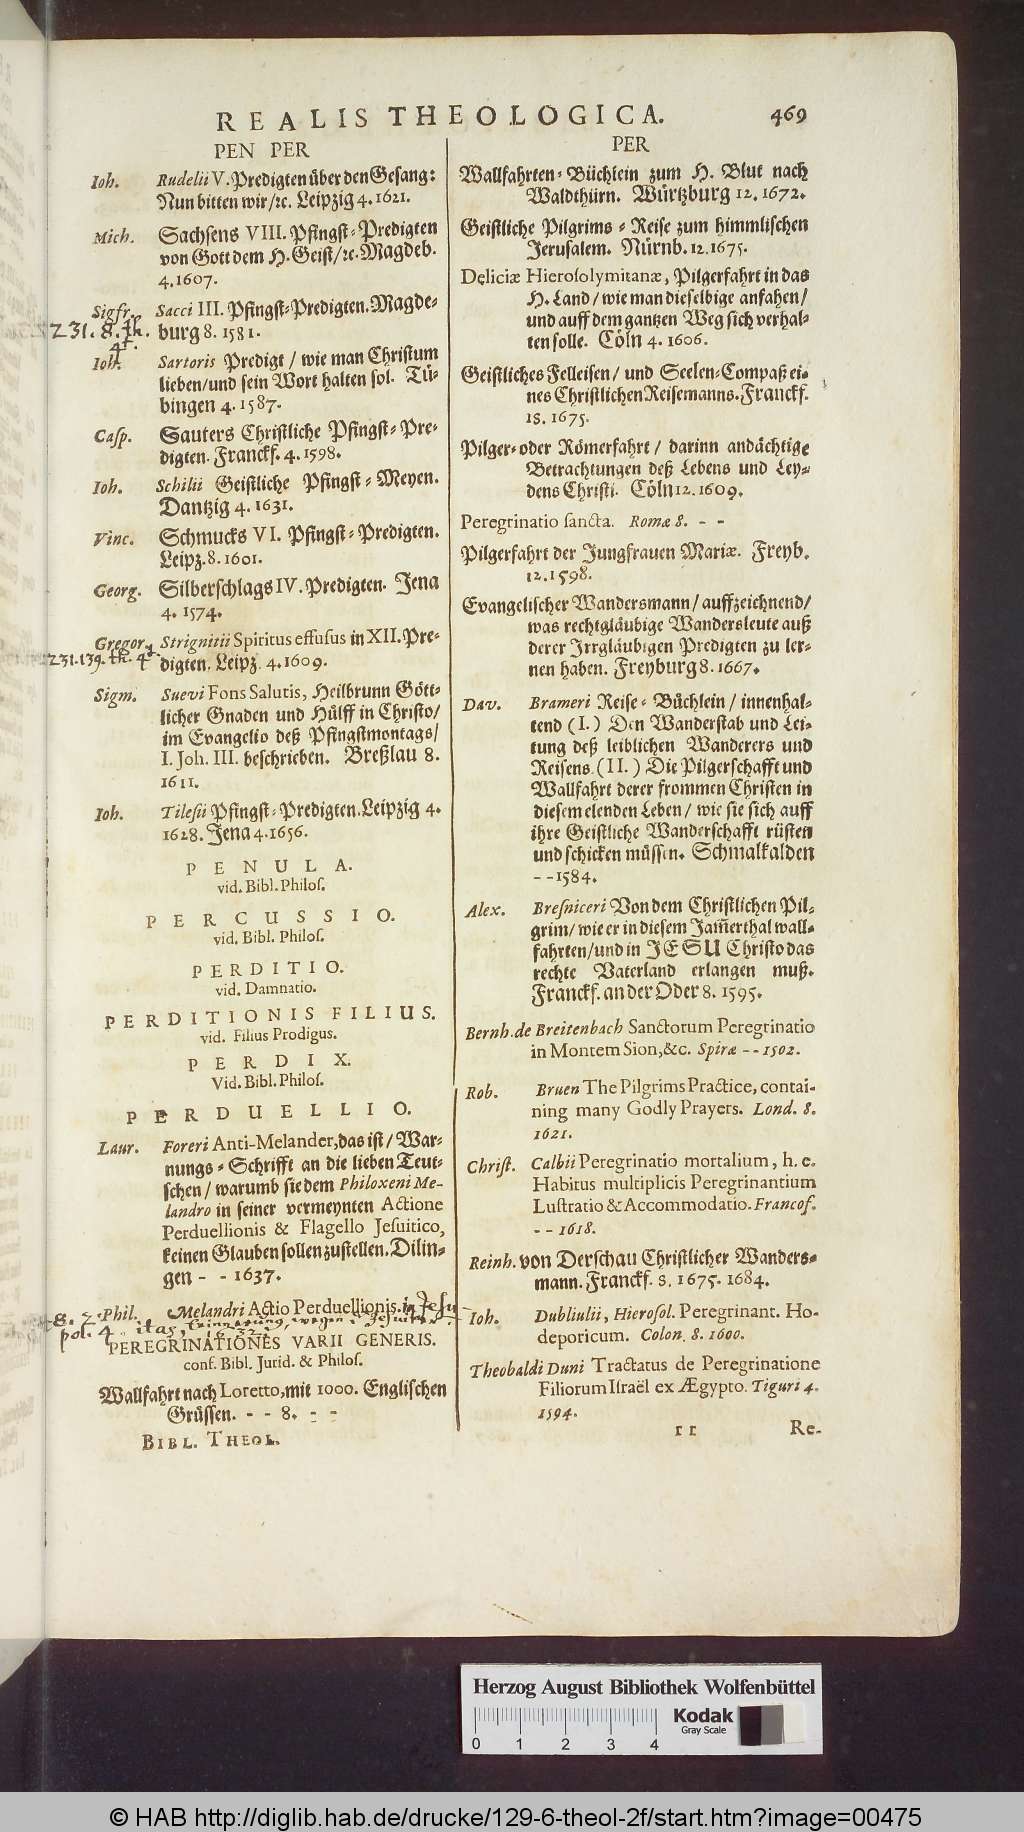 REALIS THEOLOGICA. 469
PEN PER
Ioh. Rudelii V. Predigten über den Gesang:
Nun bitten wir/ꝛc. Leipzig 4. 1621.
Mich. Sachsens VIII. Pfingst-Predigten
von Gott dem H. Geist/ꝛc. Magdeb.
4. 1607.
Sigfr. Sacci III. Pfingst-Predigten. Magde-
231. 8. th. 4t. burg 8. 1581.
Ioh. Sartoris Predigt / wie man Christum
lieben/und sein Wort halten sol. Tü-
bingen 4. 1587.
Casp. Sauters Christliche Pfingst-Pre-
digten. Franckf. 4. 1598.
Ioh. Schilii Geistliche Pfingst-Meyen.
Dantzig 4. 1631.
Vinc. Schmucks VI. Pfingst-Predigten.
Leipz. 8. 1601.
Georg. Silberschlags IV. Predigten. Jena
4. 1574.
Gregor. Strignitii Spiritus effusus in XII. Pre-
231.139. th. 4 digten. Leipz. 4. 1609.
Sigm. Suevi Fons Salutis, Heilbrunn Gött-
licher Gnaden und Hülff in Christo/
im Evangelio deß Pfingstmontags/
I. Joh. III. beschrieben. Breßlau 8.
1611.
Ioh. Tilesii Pfingst-Predigten. Leipzig 4.
1628. Jena 4. 1656.
PENULA.
vid. Bibl. Philos.
PERCUSSIO.
vid. Bibl. Philos.
PERDITIO.
vid. Damnatio.
PERDITIONIS FILIUS.
vid. Filius Prodigus.
PERDIX.
Vid. Bibl. Philos.
PERDUELLIO.
Laur. Foreri Anti-Melander, das ist / War-
nungs-Schrifft an die lieben Teut-
schen / warumb sie dem Philoxeni Me-
landro in seiner vermeynten Actione
Perduellionis & Flagello Jesuitico,
keinen Glauben sollen zustellen. Dilin-
gen - - 1637.
8. 2. Phil. Melandri Actio Perduellionis. in Jesu
pol. 4. itas, Erinnerung, wegen d. Jesuiter
1632
PEREGRINATIONES VARII GENERIS.
conf. Bibl. Jurid. & Philos.
Wallfahrt nach Loretto, mit 1000. Englischen
Grüssen. - - 8. - -
BIBL. THEOL.
PER
Wallfahrten-Büchlein zum H. Blut nach
Waldthürn. Würtzburg 12. 1672.
Geistliche Pilgrims-Reise zum himmlischen
Jerusalem. Nürnb. 12. 1675.
Deliciæ Hierosolymitanæ, Pilgerfahrt in das
H. Land / wie man dieselbige anfahen/
und auff dem gantzen Weg sich verhal-
ten solle. Cöln 4. 1606.
Geistliches Felleisen / und Seelen-Compaß ei-
nes Christlichen Reisemanns. Franckf.
18. 1675.
Pilger- oder Römerfahrt / darinn andächtige
Betrachtungen deß Lebens und Ley-
dens Christi. Cöln 12. 1609.
Peregrinatio sancta. Romæ 8. - -
Pilgerfahrt der Jungfrauen Mariæ. Freyb.
12. 1598.
Evangelischer Wandersmann / auffzeichnend/
was rechtgläubige Wandersleute auß
derer Irrgläubigen Predigten zu ler-
nen haben. Freyburg 8. 1667.
Dav. Brameri Reise-Büchlein / innenhal-
tend (I.) Den Wanderstab und Lei-
tung deß leiblichen Wanderers und
Reisens. (II.) Die Pilgerschafft und
Wallfahrt derer frommen Christen in
diesem elenden Leben / wie sie sich auff
ihre Geistliche Wanderschafft rüsten
und schicken müssen. Schmalkalden
- - 1584.
Alex. Bresniceri Von dem Christlichen Pil-
grim/ wie er in diesem Jam̃erthal wall-
fahrten/und in JESU Christo das
rechte Vaterland erlangen muß.
Franckf. an der Oder 8. 1595.
Bernh. de Breitenbach Sanctorum Peregrinatio
in Montem Sion, &c. Spiræ - - 1502.
Rob. Bruen The Pilgrims Practice, contai-
ning many Godly Prayers. Lond. 8.
1621.
Christ. Calbii Peregrinatio mortalium, h. e.
Habitus multiplicis Peregrinantium
Lustratio & Accommodatio. Francof.
- - 1618.
Reinh. von Derschau Christlicher Wanders-
mann. Franckf. 8. 1675. 1684.
Ioh. Dubliulii, Hierosol. Peregrinant. Ho-
deporicum. Colon. 8. 1600.
Theobaldi Duni Tractatus de Peregrinatione
Filiorum Israël ex Ægypto. Tiguri 4.
1594.
rr Re-
Herzog August Bibliothek Wolfenbüttel
Kodak
Gray Scale
0 1 2 3 4
© HAB http://diglib.hab.de/drucke/129-6-theol-2f/start.htm?image=00475